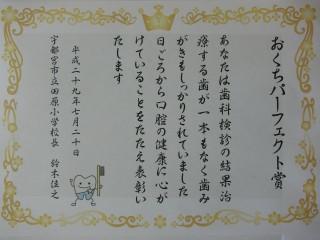 おくちパーフェクト賞
あなたは歯科検診の結果治
療する歯が一本もなく歯み
がきもしっかりされていました
日ごろから口腔の健康に心が
けていることをたたえ表彰い
たします
平成二十九年七月二十日
宇都宮市立田原小学校長　鈴木佳之